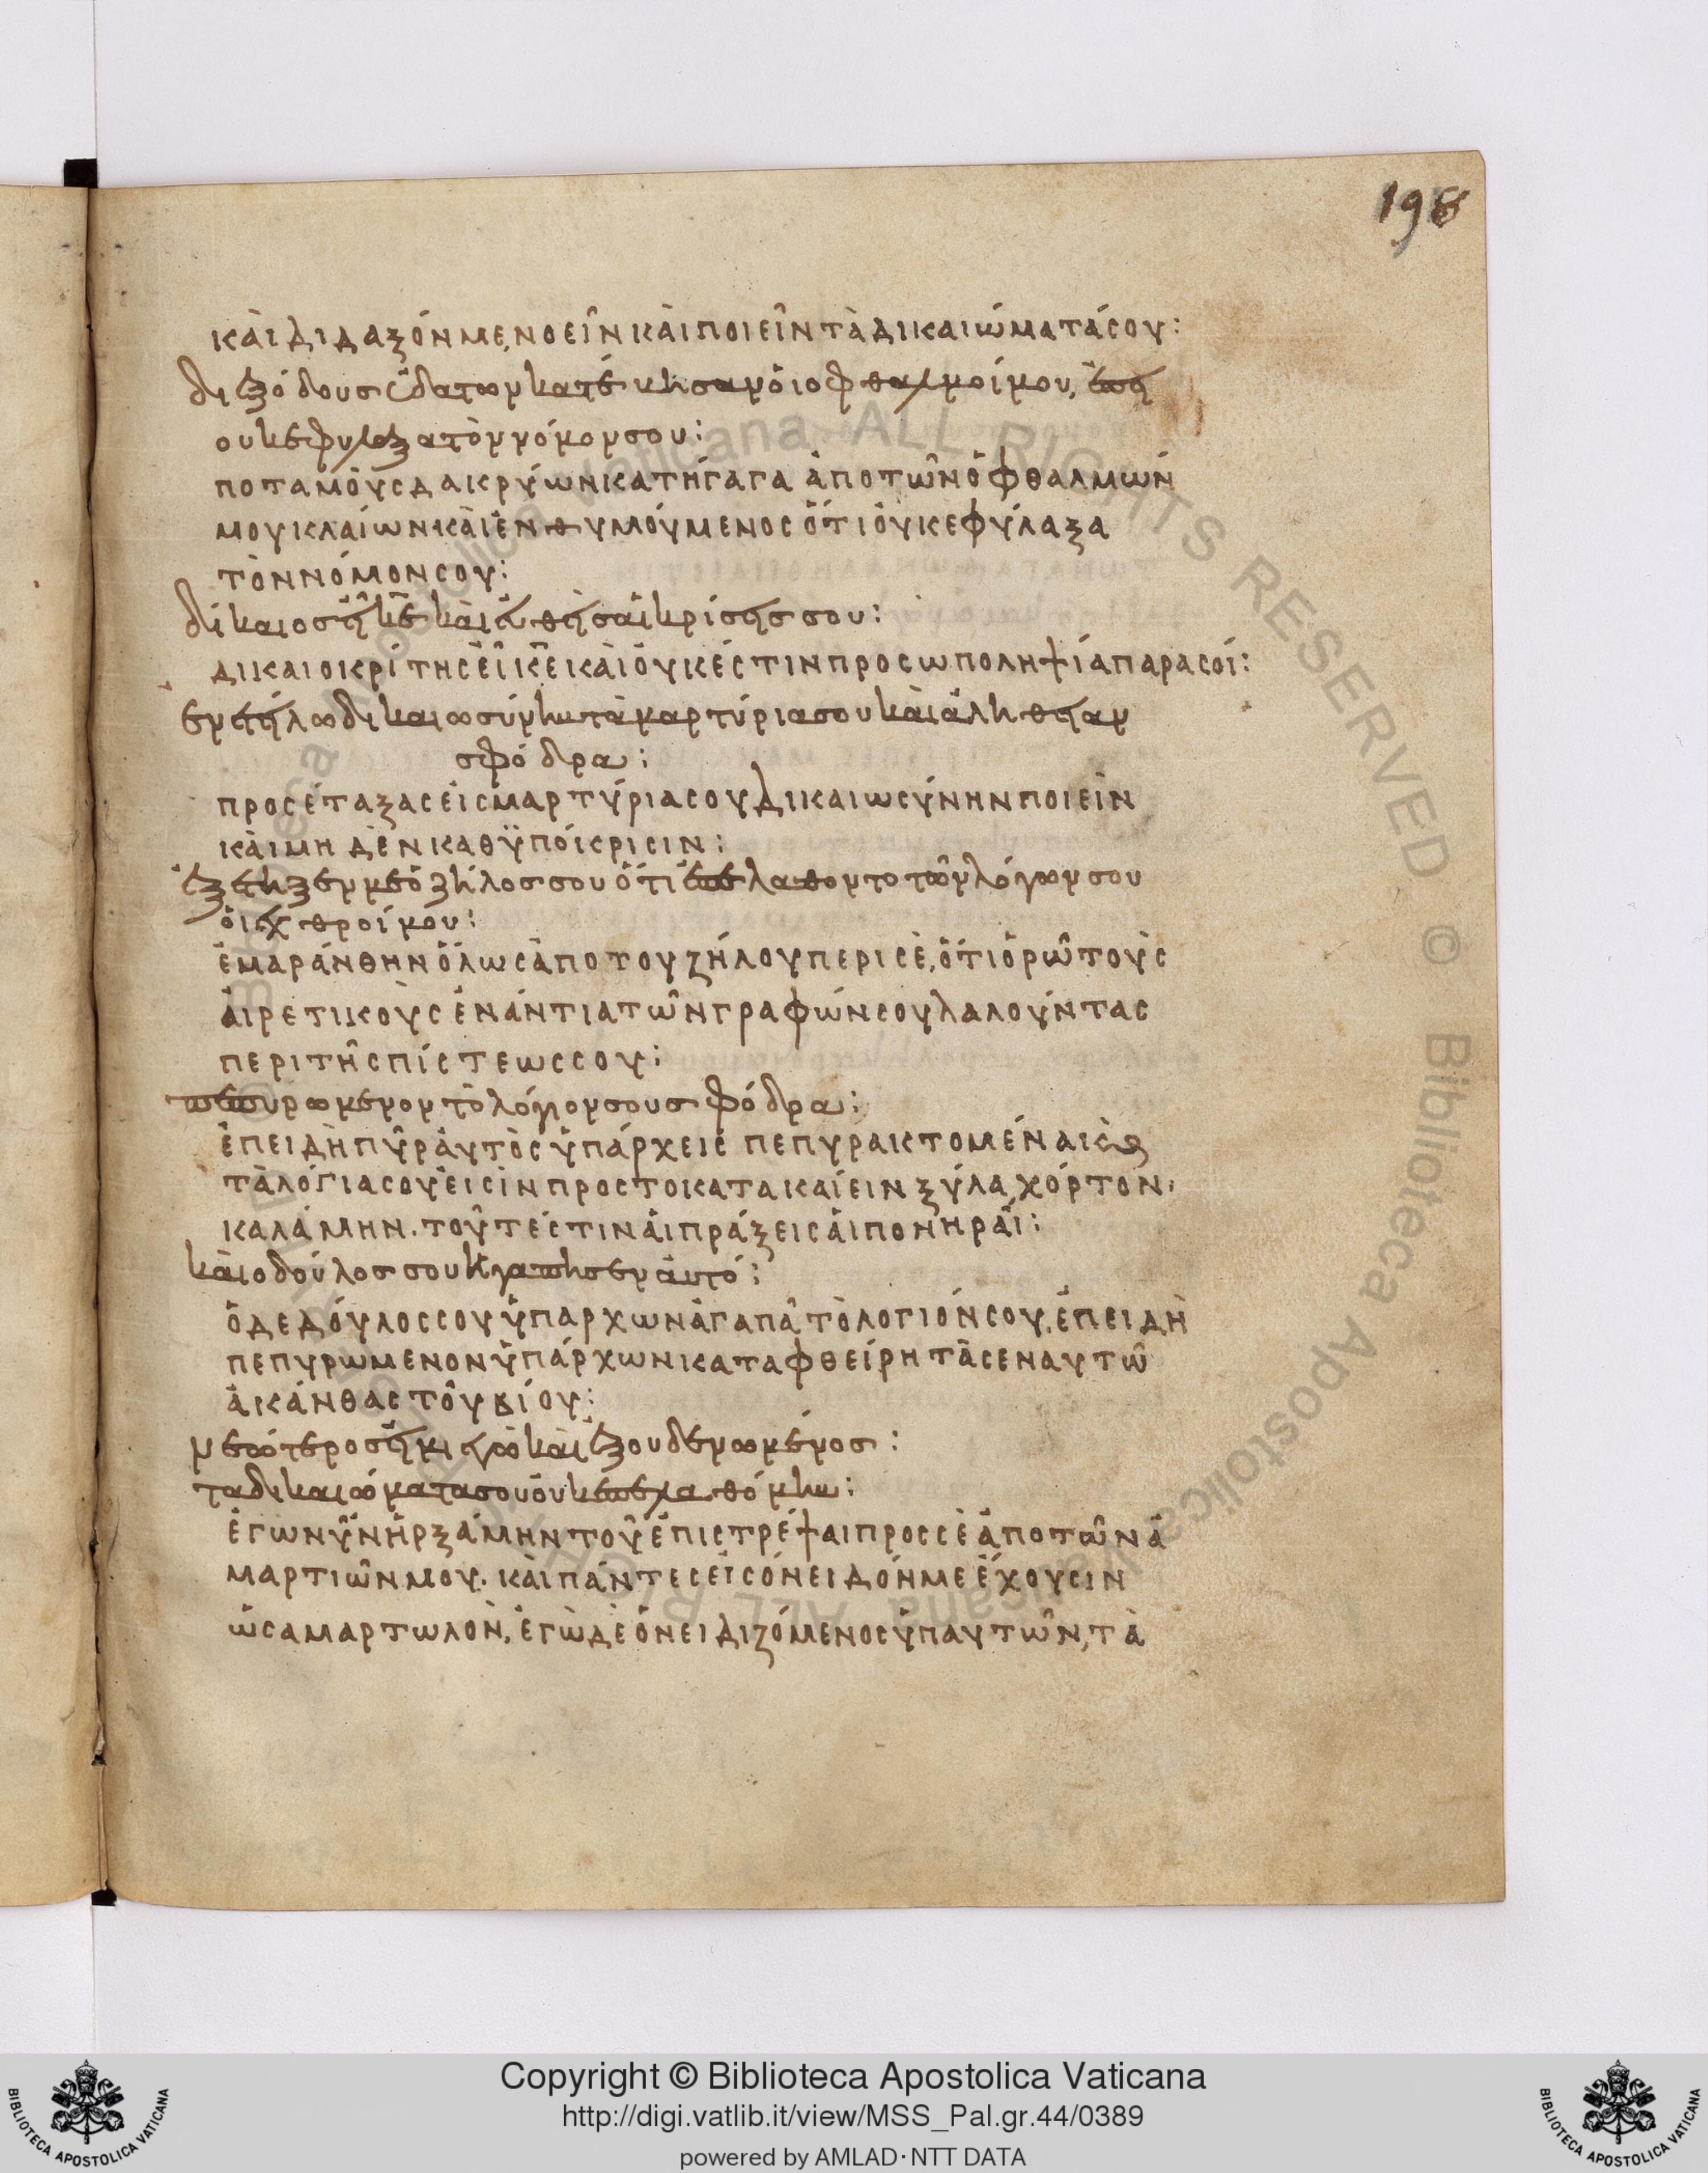 198
κὰι διδαξόν με, νοεῖν κὰι ποιεῖν τὰ δικαιώματά σου:
διεξόδους ὑδατων κατέκησαν ὁι οφθαλμοί μου, ἐπει
ουκ εφυλαξα τὸν νόμον σου:
ποταμὸυς δακρύων κατήγαγα ἀπο τῶν ὀφθαλμών
μου κλαίων κὰι ἐνθυμόυμενος ὅτι ὀυκ εφύλαξα
τὸν νόμον σου:
δίκαιος εἶ κε̄ κὰι ἐυθεισαἱ κρίσεις σου:
δικαιοκρίτης εἶ κε̄ ει κὰι ὀυκ έστιν προσωποληψία παρα σοί:
ενετείλω δικαιωσύνην τὰ μαρτύρια σου κὰι ἀλήθειαν
σφόδρα:
προσέταξας ἐις μαρτύρια σου δικαιωσύνην ποιεὶν
κὰι μηδὲν καθϋπόκρισιν:
ἐξέτηξεν με ὁ ζήλος σου ὅτι ἐπελαθοντο τῶν λόγων σου
ὁι εχθροί μου:
ἐμαράνθην ὅλως ἀπο του ζήλου περι σὲ, ὅτι ὁρῶ τοὺς
ἁιρετικοὺς ἐνάντια τῶν γραφών σου λαλούντας
περι τῆς πίστεως σου:
πεπυρωμενον τὸ λόγιον σου σφόδρα:
ἐπειδὴ πῦρ ἀυτὸς ὑπάρχεις πεπυρακτομέναι κὰι
τὰ λόγια σου ἐισὶν προς το κατακαίειν ξύλα, χόρτον,
καλάμην. τοῦτ έστιν ἁι πράξεις ἁι πονηραἱ:
κὰι ο δούλος σου ἠγαπησεν ἀυτό:
ὁ δε δόυλος σου ὑπαρχων ἀγαπᾶ τὸ λογιόν σου, ἐπειδὴ
πεπυρωμενον ὑπάρχων καταφθείρη τὰς εν αυτῶ
ἀκάνθας τοῦ βίου:
νεώτερος εἰμι εγὼ κὰι ἐξουδενωμένος:
τα δικαιώματα σου ὀυκ επελαθόμην:
ἐγω νῦν ἠρξάμην τοῦ ἐπιστρέψαι προς σὲ ἀπο τῶν ἁ
μαρτιῶν μου. κὰι πάντες εἰς όνειδόν με ἔχουσιν
ὡς αμαρτωλὸν, ἐγὼ δὲ ὀνειδιζόμενος ὑπ αυτῶν, τὰ
Copyright © Biblioteca Apostolica Vaticana
http://digi.vatlib.it/view/MSS_Pal.gr.44/0389
powered by AMLAD·NTT DATA
BIBLIOTECA APOSTOLICA VATICANA
BIBLIOTECA APOSTOLICA VATICANA